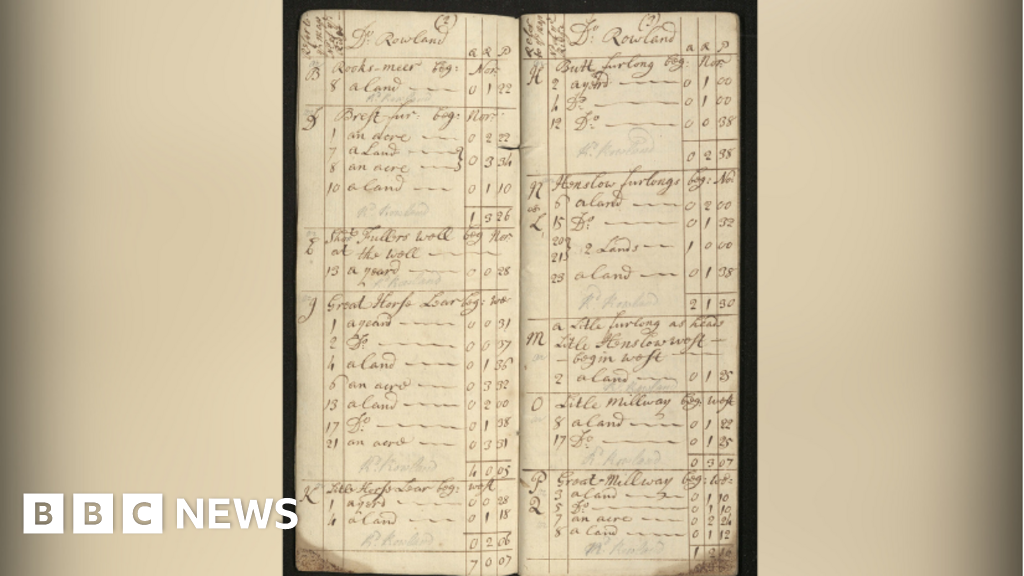 (2)
Do. Rowland
a R P
B Rooks-meer beg: Nor:
8 a land 0 1 22
Rd. Rowland
Brest fur: beg: Nor:
1 an acre 0 2 22
7 a Land
8 an acre 0 3 34
10 a land 0 1 10
Rd. Rowland
1 3 26
E Fullers well beg Nor
at the well
13 a yeard 0 0 28
Rd. Rowland
J Great Horse Lear beg: we:
1 a yeard 0 0 31
2 Do. 0 0 37
4 a land 0 1 36
6 an acre 0 3 32
13 a land 0 2 00
17 Do. 0 1 38
21 an acre 0 3 31
Rd. Rowland
4 0 05
K Little Horse Lear beg: west
1 a yerd 0 0 28
4 a land 0 1 18
Rd. Rowland
0 2 06
7 0 07
(3)
Do. Rowland
a R P
H Butt furlong beg: Nor:
2 a yeard 0 1 00
4 Do. 0 1 00
12 Do. 0 0 38
Rd. Rowland
0 2 38
Henslow furlongs beg: Nor:
6 a land 0 2 00
L 15 Do. 0 1 32
20
21 2 Lands 1 0 00
23 a land 0 1 38
Rd. Rowland
2 1 30
a Little furlong as heads
M Little Henslow west
begin west
2 a land 0 1 25
Rd. Rowland
O Little Millway beg: west
8 a land 0 1 22
17 Do. 0 1 25
Rd. Rowland
0 3 07
P Great Millway beg: we:
3 a land 0 1 10
Q 5 Do. 0 1 10
7 an acre 0 2 24
8 a land 0 1 12
Rd. Rowland
BBC NEWS